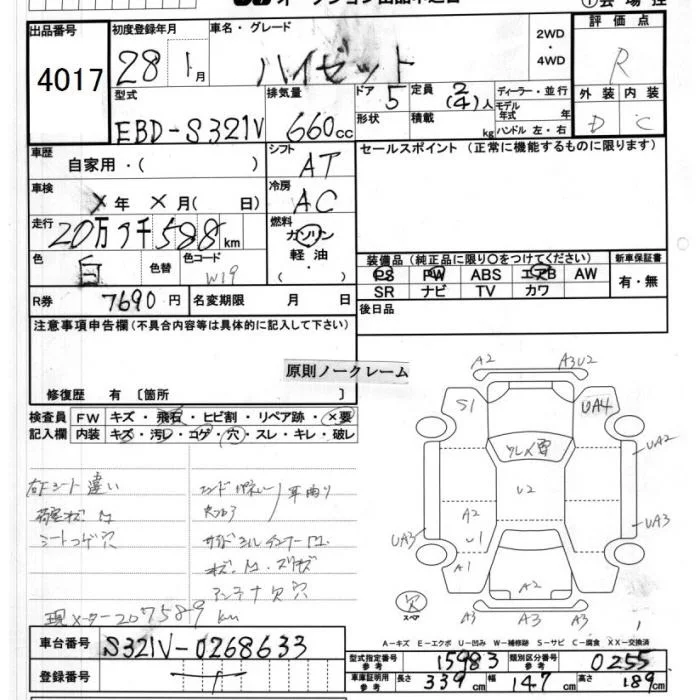 出品番号 4017
初度登録年月 28 1月
車名・グレード ハイゼット
2WD ・ 4WD
評価点 R
外装 D 内装 C
型式 EBD-S321V
排気量 660cc
ドア 5
定員 2 (4)人
ディーラー・並行
形状
積載 kg
モデル年式 年
ハンドル 左・右
車歴 自家用・( )
シフト AT
セールスポイント (正常に機能するものに限ります)
車検 ×年 ×月( 日)
冷房 AC
走行 20万7千588km
燃料 ガソリン 軽油 ・( )
色 白 色替
色コード W19
装備品(純正品に限り○をつけてください)
PS PW ABS エアB AW
SR ナビ TV カワ
新車保証書 有・無
R券 7690円
名変期限 月 日
後日品
注意事項申告欄(不具合内容等は具体的に記入して下さい)
原則ノークレーム
修復歴 有 [箇所 ]
検査員記入欄
FW キズ・飛石・ヒビ割・リペア跡・×要
内装 キズ・汚レ・コゲ・穴・スレ・キレ・破レ
右Fシート違い
シートコゲ穴
アンテナ欠穴
現メーター207589km
A2 A3U2
S1 UA4
UA2
U2
A2
U1
UA3 UA3
A1 A2
A3 A3 A3
欠
スペア
A−キズ E−エクボ U−凹み W−補修跡 S−サビ C−腐食 XX−交換済
車台番号 S321V-0268633
登録番号
型式指定番号 参考 15983
類別区分番号 参考 0255
車庫証明用 参考 長さ 339cm 幅 147cm 高さ 189cm